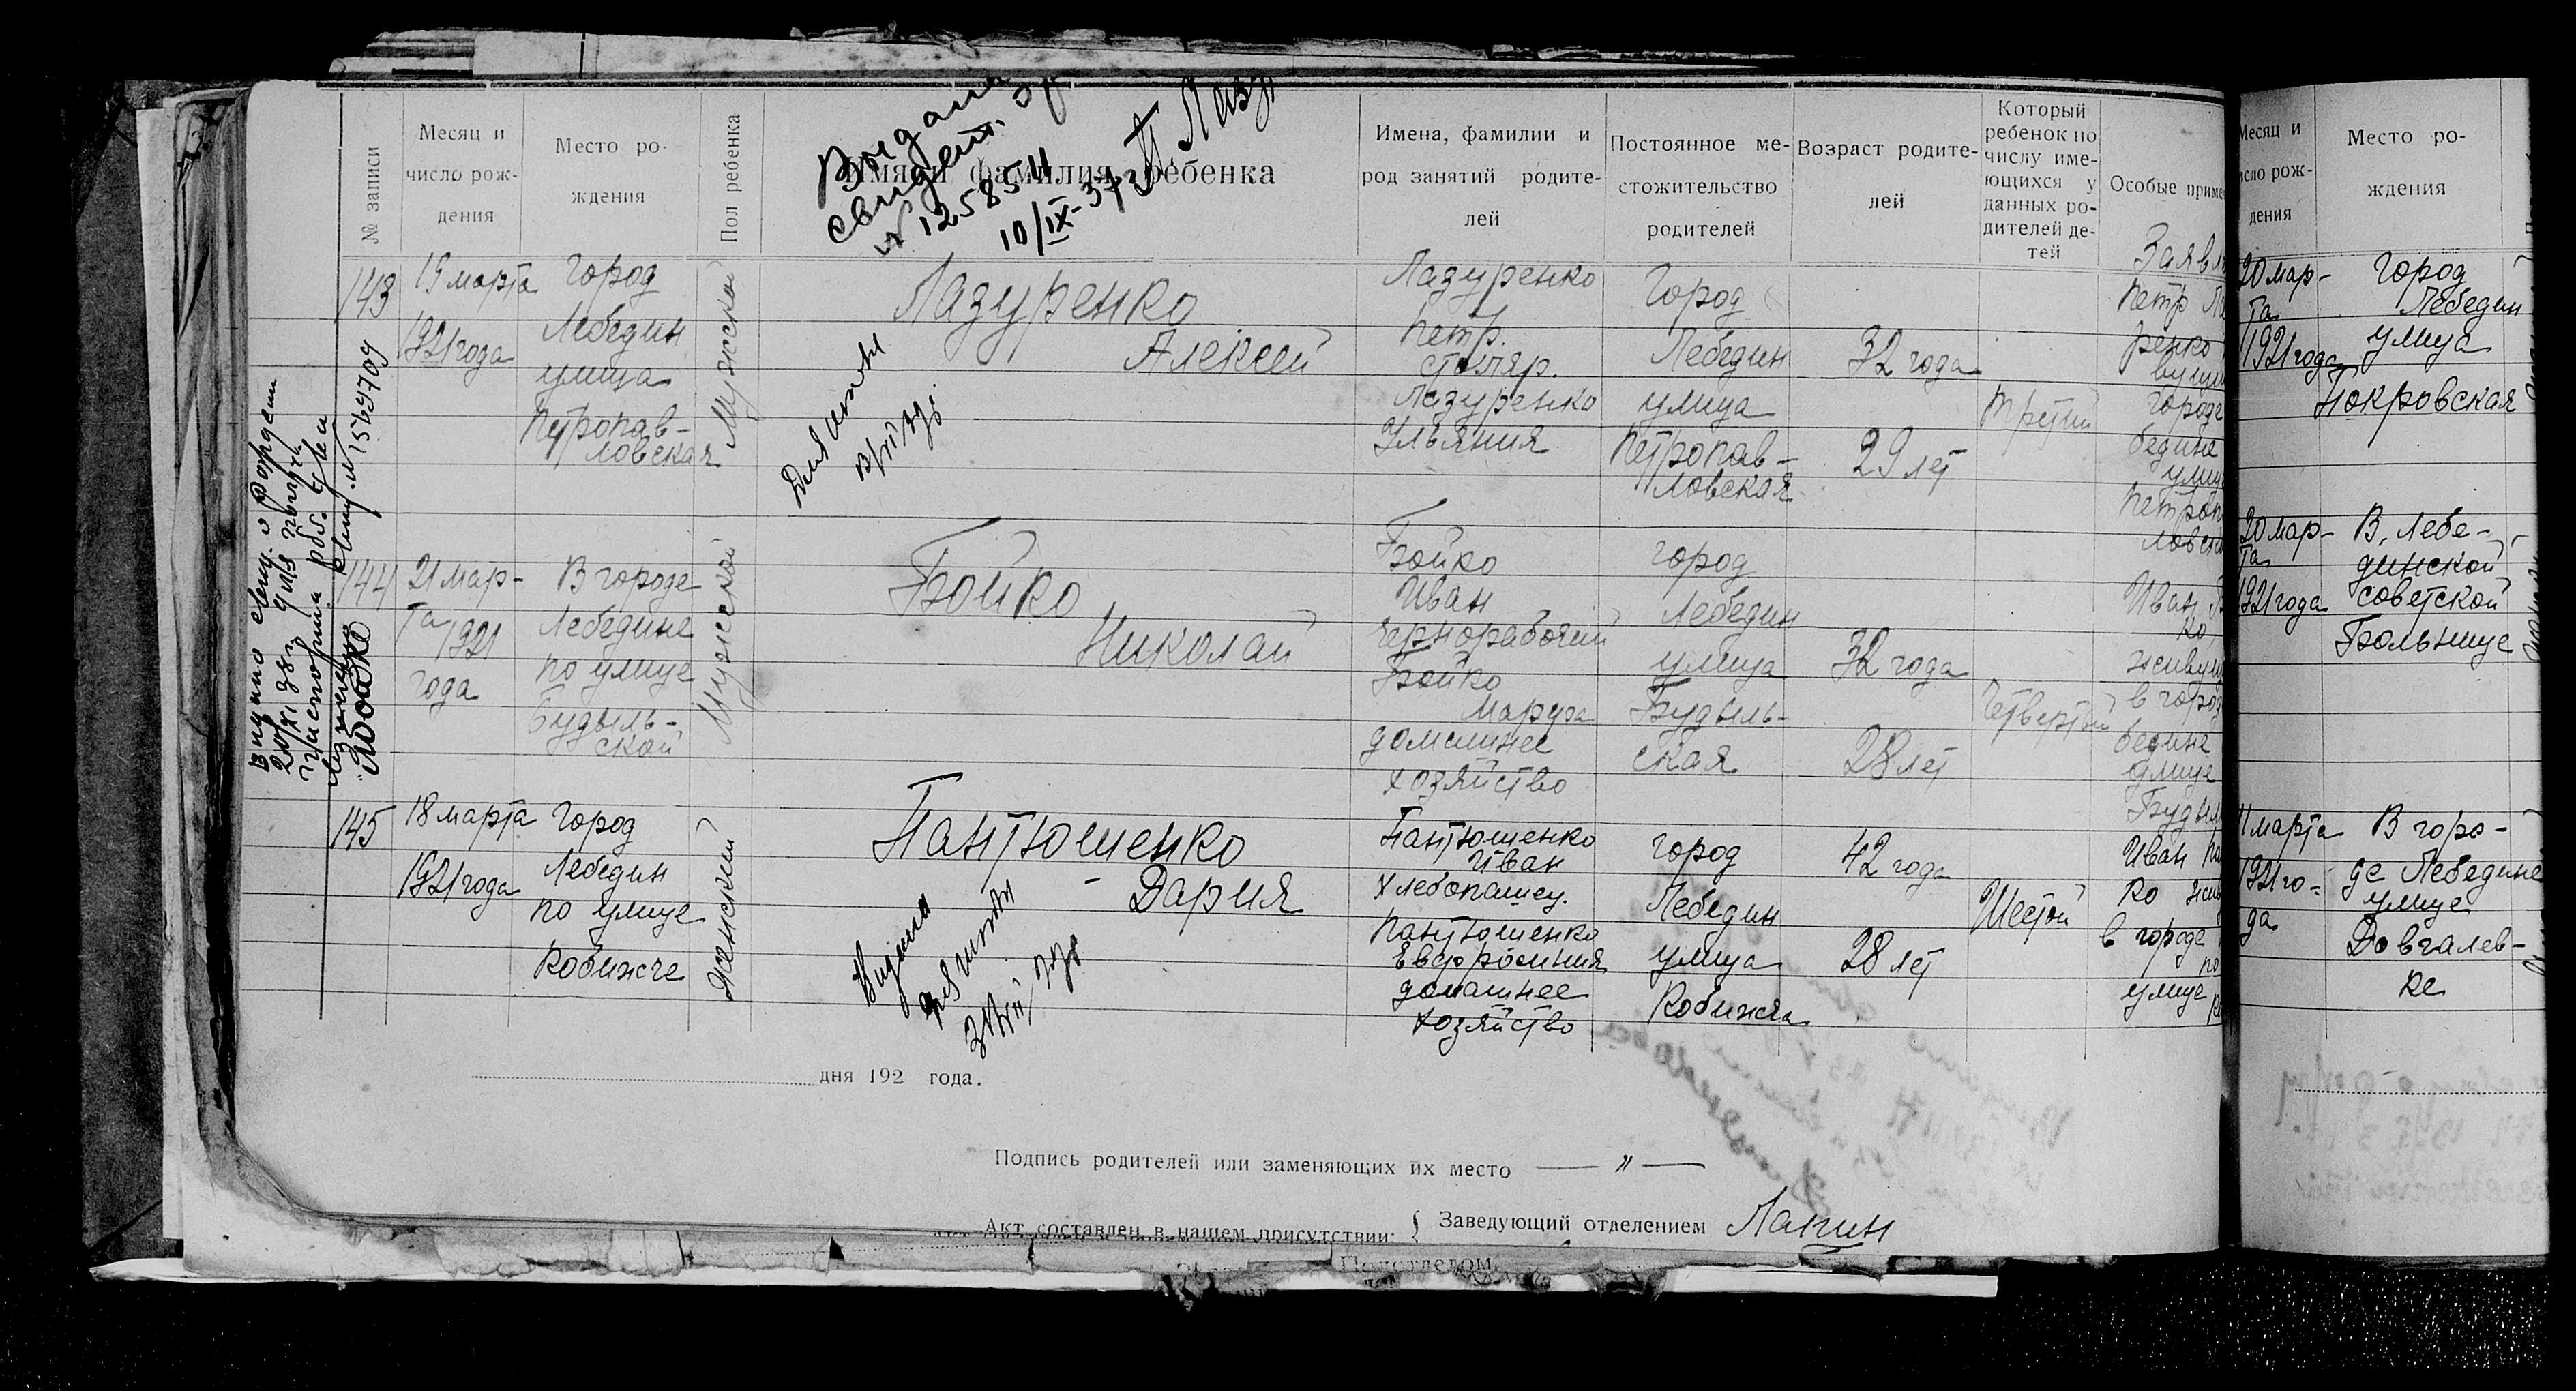 № записи
Месяц и
число рож-
дения
Место ро-
ждения
Пол ребенка
Имя и фамилия ребенка
Имена, фамилии и
род занятий родите-
лей
Постоянное ме-
стожительство
родителей
Возраст родите-
лей
Который
ребенок по
числу име-
ющихся у
данных ро-
дителей де-
тей
Особые приме
№ 1258511
10/IX-37
143
19 марта
1921 года
город
Лебедин
улица
Петропав-
ловская
Мужской
Лазуренко
Алексей
Лазуренко
Петр.
столяр.
Лазуренко
Ульяния
Город
Лебедин
улица
Петропав-
ловская
32 года
29 лет
третий
Заявл
Петр Ла
ренко
городе
бедине
Петроп
ловск
144
21 мар-
та 1921
года
В городе
Лебедине
по улице
Будыль-
ской
Мужской
Бойко
Николай
Бойко
Иван
чернорабочий
Бойко
Марфа
домашнее
хозяйство
город
Лебедин
улица
Будыль-
ская
32 года
28 лет
Четвертый
Иван Б
ко
живущ
в город
бедине
улице
Будыл
145
18 марта
1921 года
город
Лебедин
по улице
Кобижче
Женский
Пантюшенко
- Дария
Пантюшенко
Иван
хлебопашец.
Пантюшенко
Евфросиния
домашнее
хозяйство
город
Лебедин
улица
Кобижча
42 года
28 лет
Шестой
Иван Па
ко жив
в городе
по
улице
дня 192 года.
Подпись родителей или заменяющих их место — „ —
Акт составлен в нашем присутствии: { Заведующий отделением Лапин
Подотделом
Месяц и
исло рож-
дения
Место ро-
ждения
20 мар-
та
1921 года
город
Лебедин
улица
Покровская
20 мар-
та
1921 года
В. Лебе-
динской
советской
Больнице
11 марта
1921 го-
да
В горо-
де Лебедине
улице
Довгалев-
ке